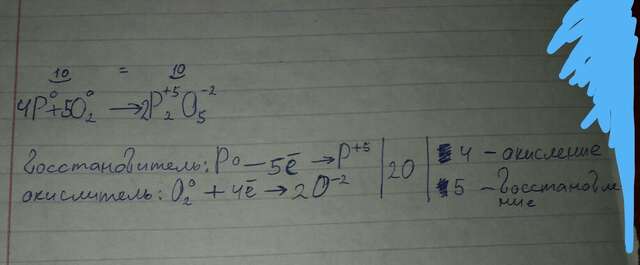 10 = 10
4P⁰+5O₂⁰ → 2P₂⁺⁵O₅⁻²
восстановитель: P⁰ – 5ē → P⁺⁵ | 20 | 4 – окисление
окислитель: O₂⁰ + 4ē → 2O⁻² | 5 – восстановление